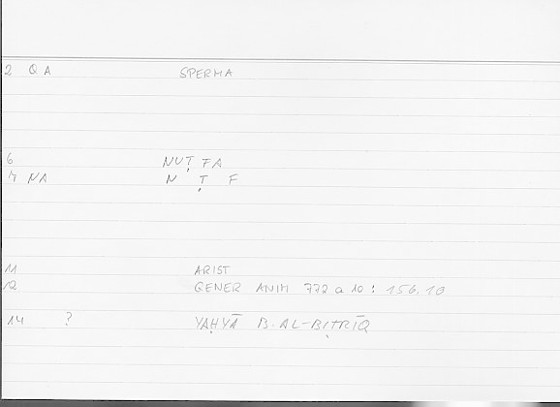 2 QA SPERMA
6 NUṬFA
7 NA N Ṭ F
11 ARIST
12 GENER ANIM 772 a 10 : 156,10
14 ? YAḤYĀ B. AL-BIṬRĪQ